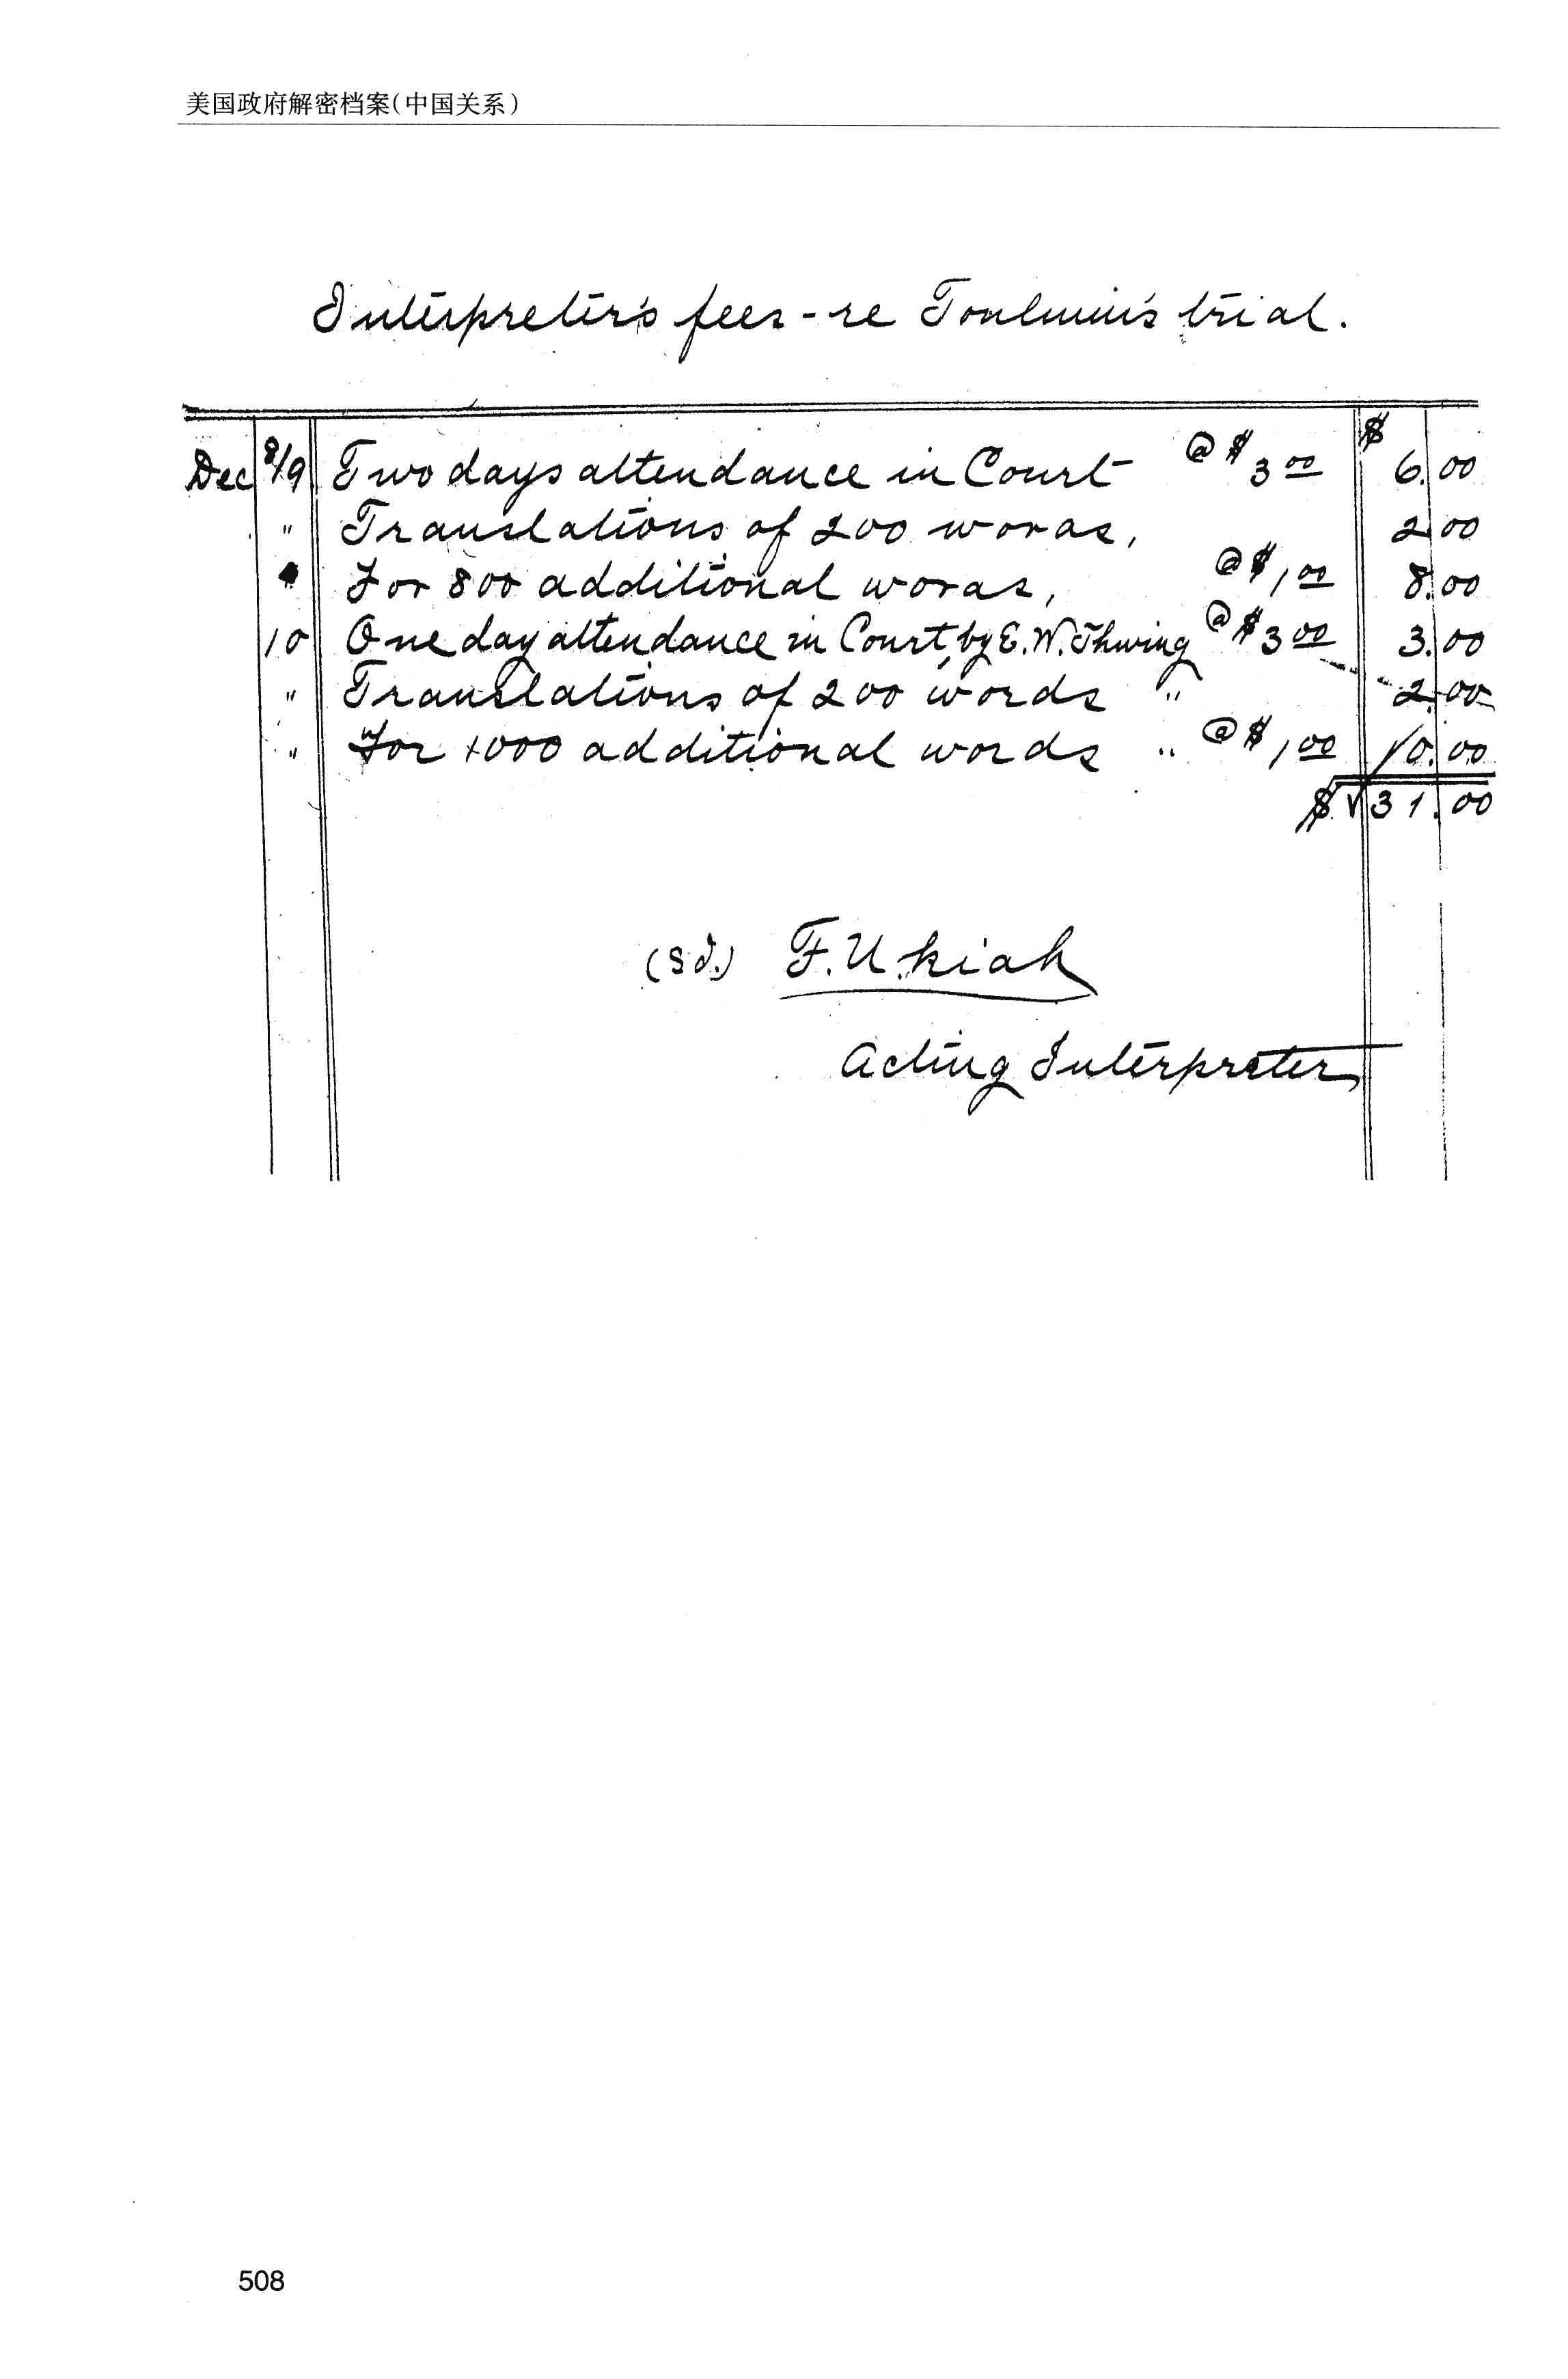 美国政府解密档案(中国关系)
Interpreter's fees - re Toulmin's trial.
$
Dec 8/9 Two days attendance in Court @ $3 00 6.00
" Translations of 200 words, 2.00
" For 800 additional words, @ $1,00 8.00
10 One day attendance in Court, by E. W. Thwing @ $3 00 3.00
" Translations of 200 words " 2.00
" For 1000 additional words " @ $1,00 10.00
$ 31.00
(Sd.) F. U. kiah
Acting Interpreter
508